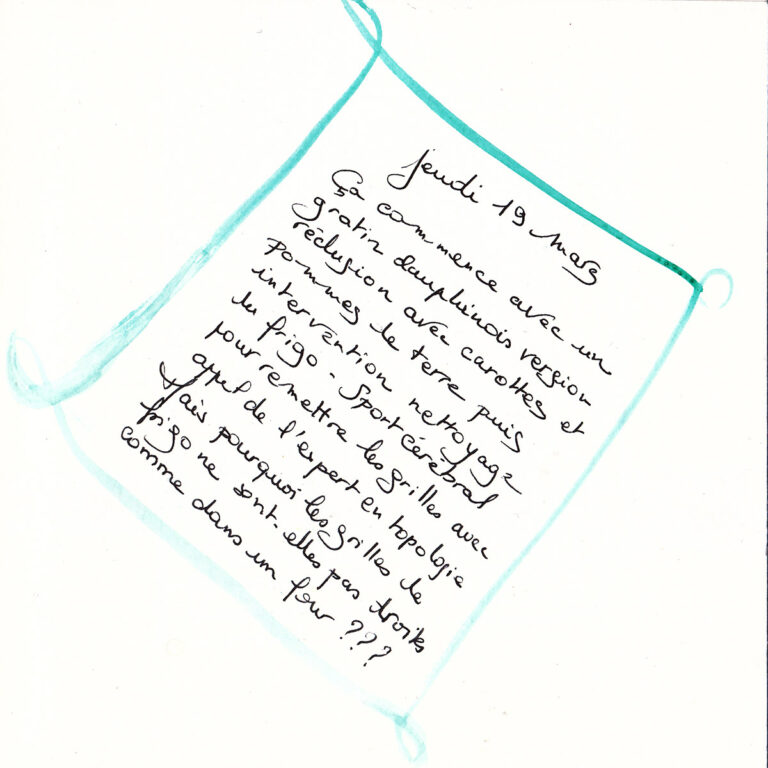 Jeudi 19 mars
Ça commence avec un
gratin dauphinois version
réclusion avec carottes et
pommes de terre puis
intervention nettoyage
du frigo - Sport cérébral
pour remettre les grilles avec
appel de l'expert en topologie
Mais pourquoi les grilles de
frigo ne sont-elles pas droites
comme dans un four ???